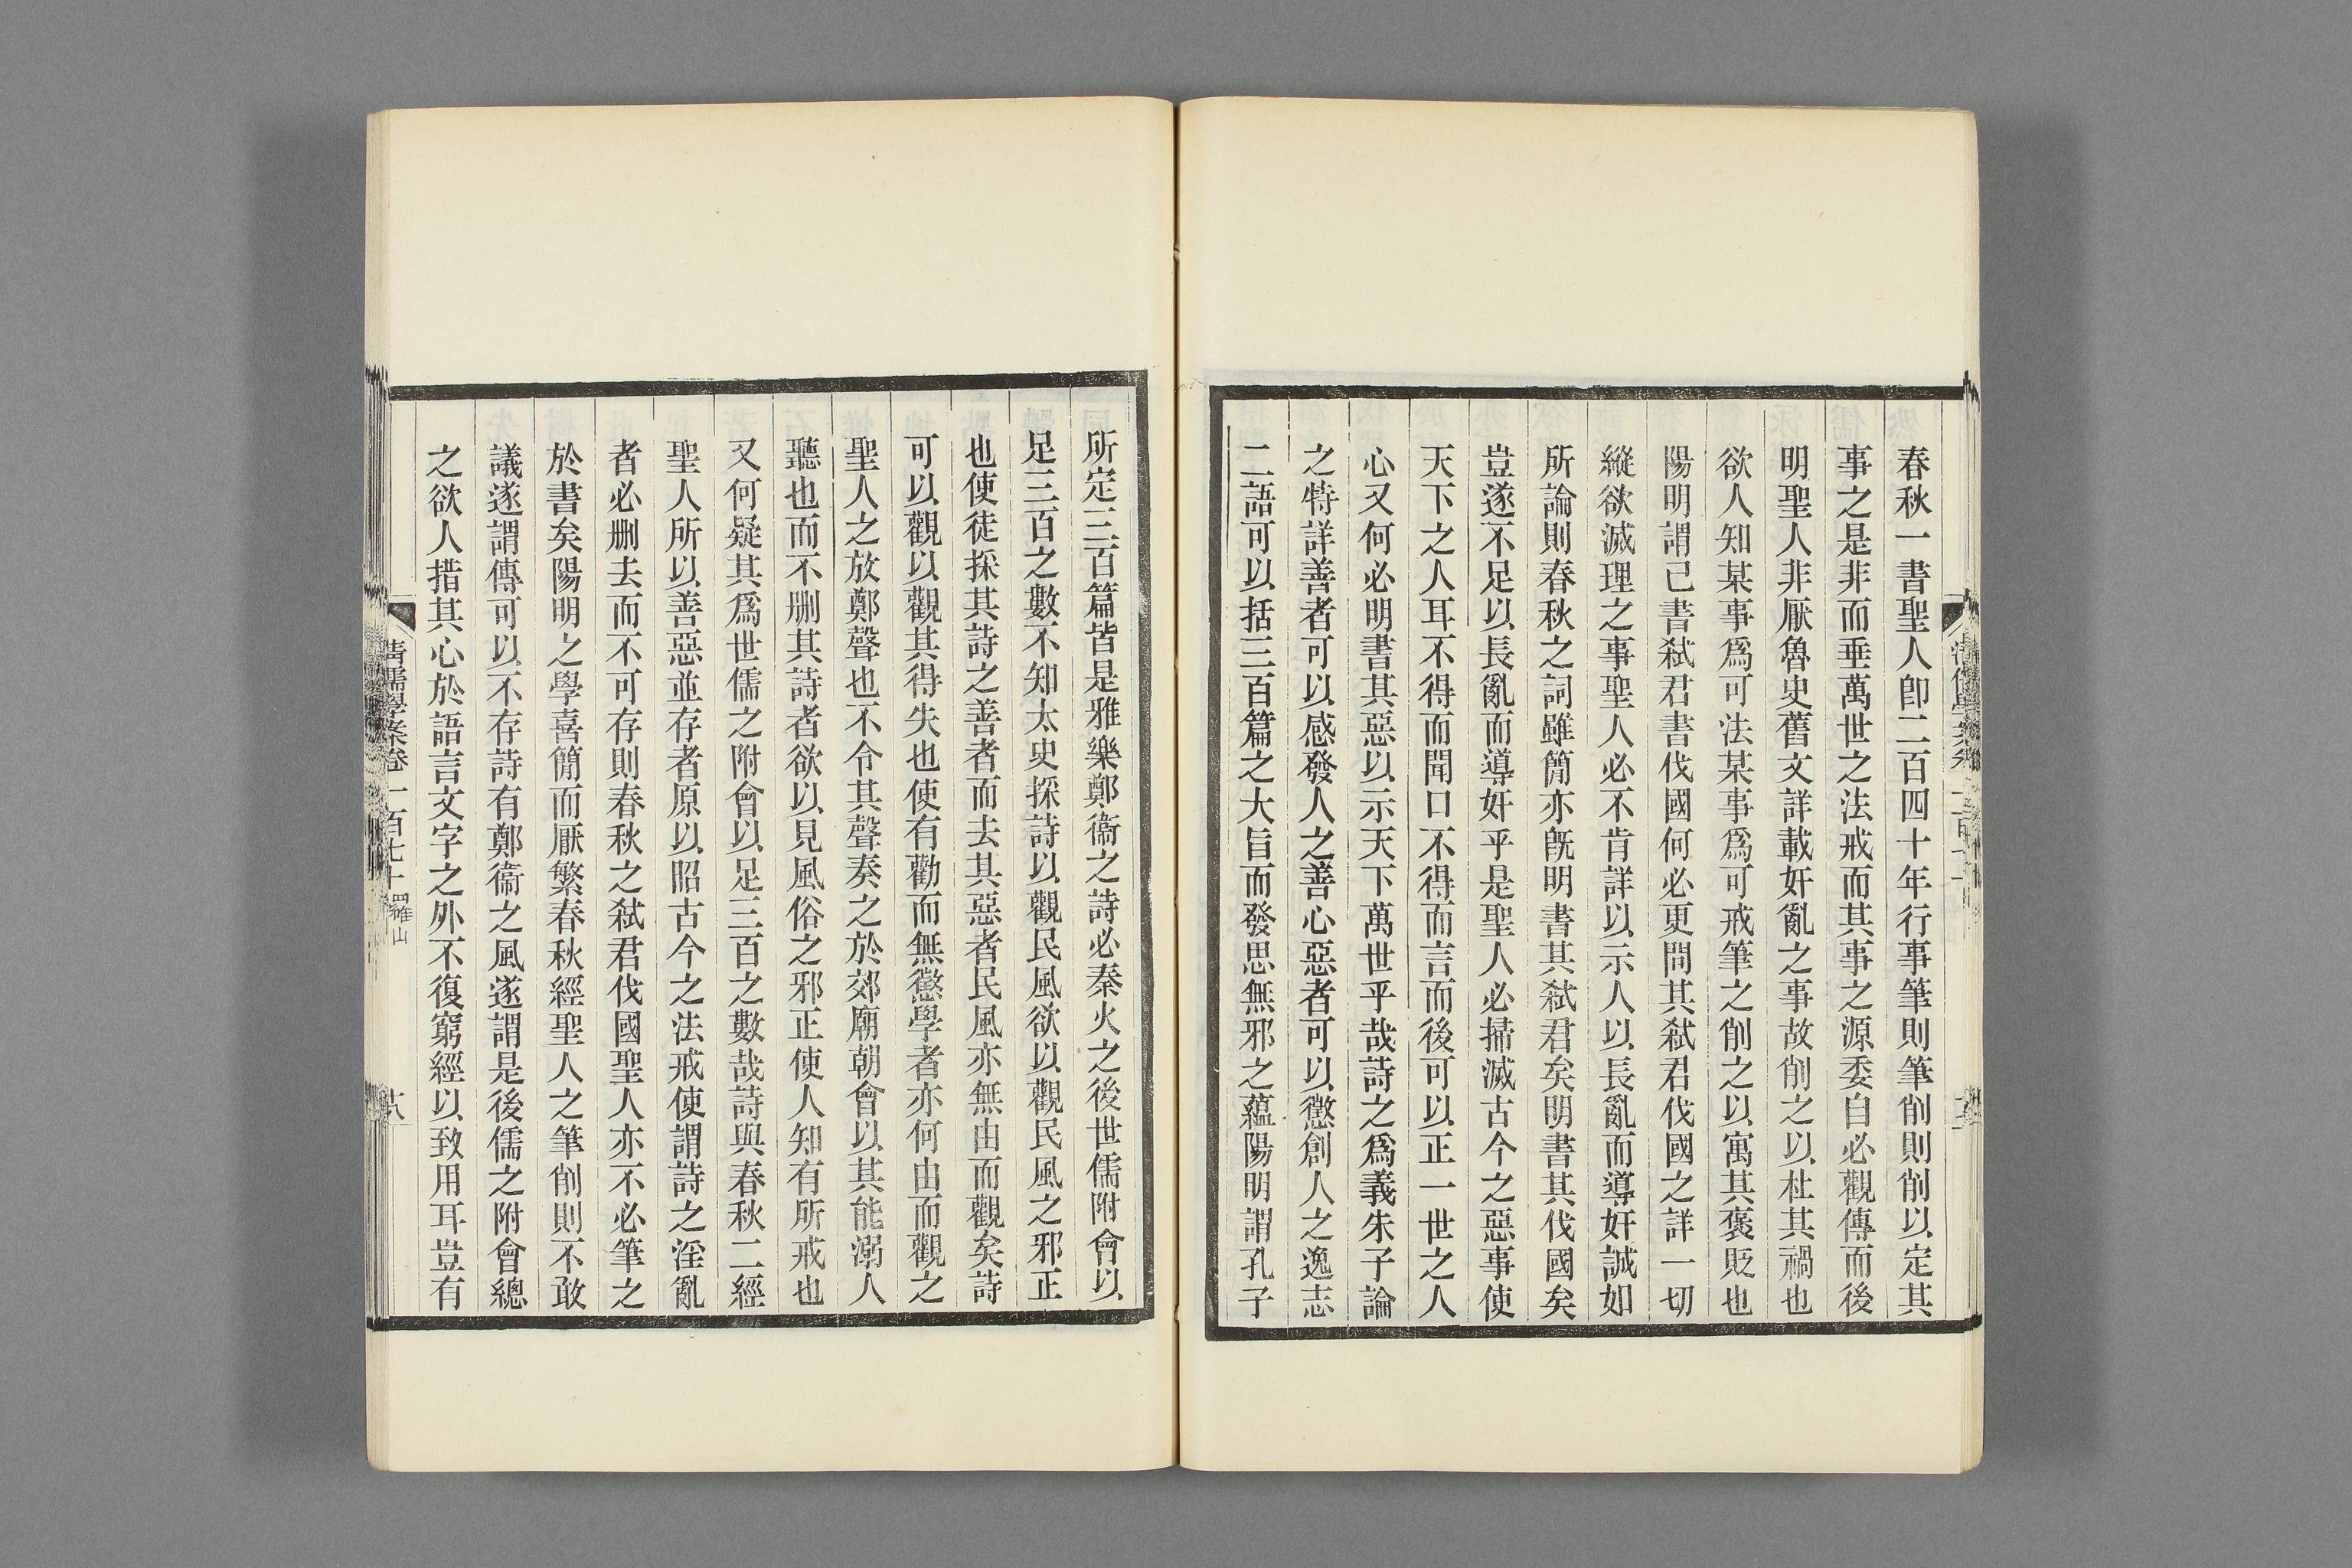 春秋一書聖人卽二百四十年行事筆則筆削則削以定其
事之是非而垂萬世之法戒而其事之源委自必觀傳而後
明聖人非厭魯史舊文詳載奸亂之事故削之以杜其禍也
欲人知某事爲可法某事爲可戒筆之削之以寓其褒貶也
陽明謂已書弒君書伐國何必更問其弒君伐國之詳一切
縱欲滅理之事聖人必不肯詳以示人以長亂而導奸誠如
所論則春秋之詞雖簡亦旣明書其弒君矣明書其伐國矣
豈遂不足以長亂而導奸乎是聖人必掃滅古今之惡事使
天下之人耳不得而聞口不得而言而後可以正一世之人
心又何必明書其惡以示天下萬世乎哉詩之爲義朱子論
之特詳善者可以感發人之善心惡者可以懲創人之逸志
二語可以括三百篇之大旨而發思無邪之蘊陽明謂孔子
所定三百篇皆是雅樂鄭衞之詩必秦火之後世儒附會以
足三百之數不知太史採詩以觀民風欲以觀民風之邪正
也使徒採其詩之善者而去其惡者民風亦無由而觀矣詩
可以觀以觀其得失也使有勸而無懲學者亦何由而觀之
聖人之放鄭聲也不令其聲奏之於郊廟朝會以其能溺人
聽也而不删其詩者欲以見風俗之邪正使人知有所戒也
又何疑其爲世儒之附會以足三百之數哉詩與春秋二經
聖人所以善惡並存者原以昭古今之法戒使謂詩之淫亂
者必删去而不可存則春秋之弒君伐國聖人亦不必筆之
於書矣陽明之學喜簡而厭繁春秋經聖人之筆削則不敢
議遂謂傳可以不存詩有鄭衞之風遂謂是後儒之附會總
之欲人措其心於語言文字之外不復窮經以致用耳豈有
清儒學案卷一百七十 羅山 十八